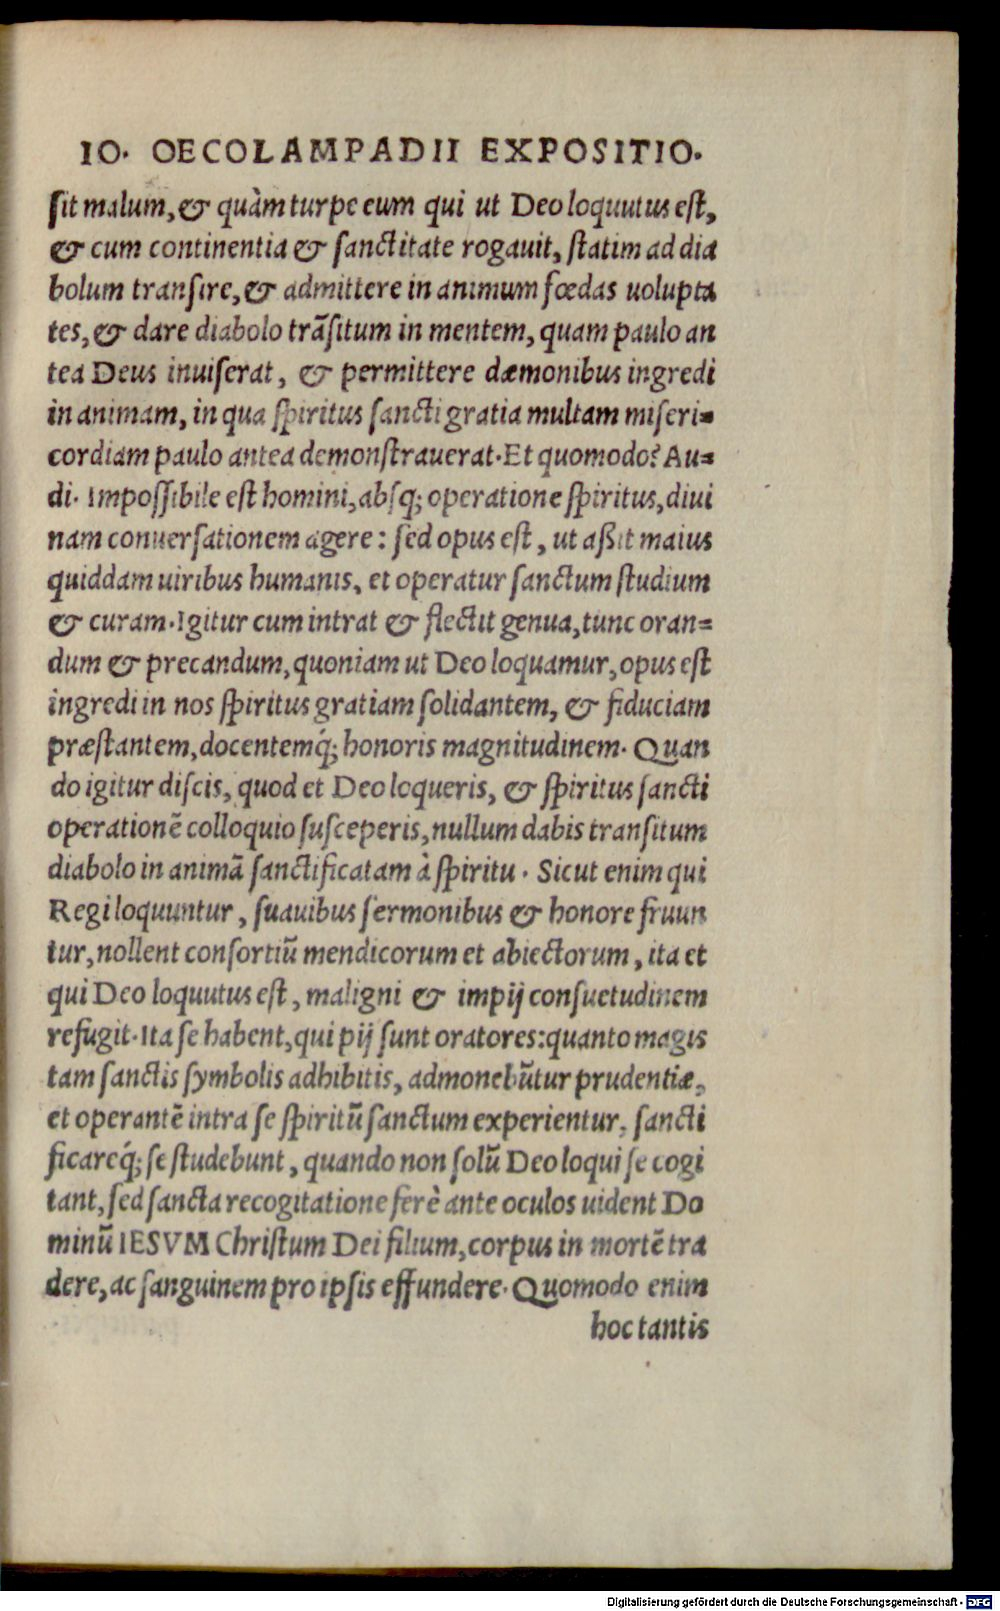 IO. OECOLAMPADII EXPOSITIO.
sit malum, & quàm turpe eum qui ut Deo loquutus est,
& cum continentia & sanctitate rogauit, statim ad dia
bolum transire, & admittere in animum fœdas uolupta
tes, & dare diabolo trãsitum in mentem, quam paulo an
tea Deus inuiserat, & permittere dæmonibus ingredi
in animam, in qua spiritus sancti gratia multam miseri=
cordiam paulo antea demonstrauerat. Et quomodo? Au=
di. Impossibile est homini, absq; operatione spiritus, diui
nam conuersationem agere: sed opus est, ut aßit maius
quiddam uiribus humanis, et operatur sanctum studium
& curam. Igitur cum intrat & flectit genua, tunc oran=
dum & precandum, quoniam ut Deo loquamur, opus est
ingredi in nos spiritus gratiam solidantem, & fiduciam
præstantem, docentemq́; honoris magnitudinem. Quan
do igitur discis, quod et Deo loqueris, & spiritus sancti
operationẽ colloquio susceperis, nullum dabis transitum
diabolo in animã sanctificatam à spiritu. Sicut enim qui
Regi loquuntur, suauibus sermonibus & honore fruun
tur, nollent consortiũ mendicorum et abiectorum, ita et
qui Deo loquutus est, maligni & impij consuetudinem
refugit. Ita se habent, qui pij sunt oratores: quanto magis
tam sanctis symbolis adhibitis, admonebũtur prudentiæ,
et operantẽ intra se spiritũ sanctum experientur, sancti
ficareq́; se studebunt, quando non solũ Deo loqui se cogi
tant, sed sancta recogitatione ferè ante oculos uident Do
minũ IESVM Christum Dei filium, corpus in mortẽ tra
dere, ac sanguinem pro ipsis effundere. Quomodo enim
hoc tantis
Digitalisierung gefördert durch die Deutsche Forschungsgemeinschaft - DFG